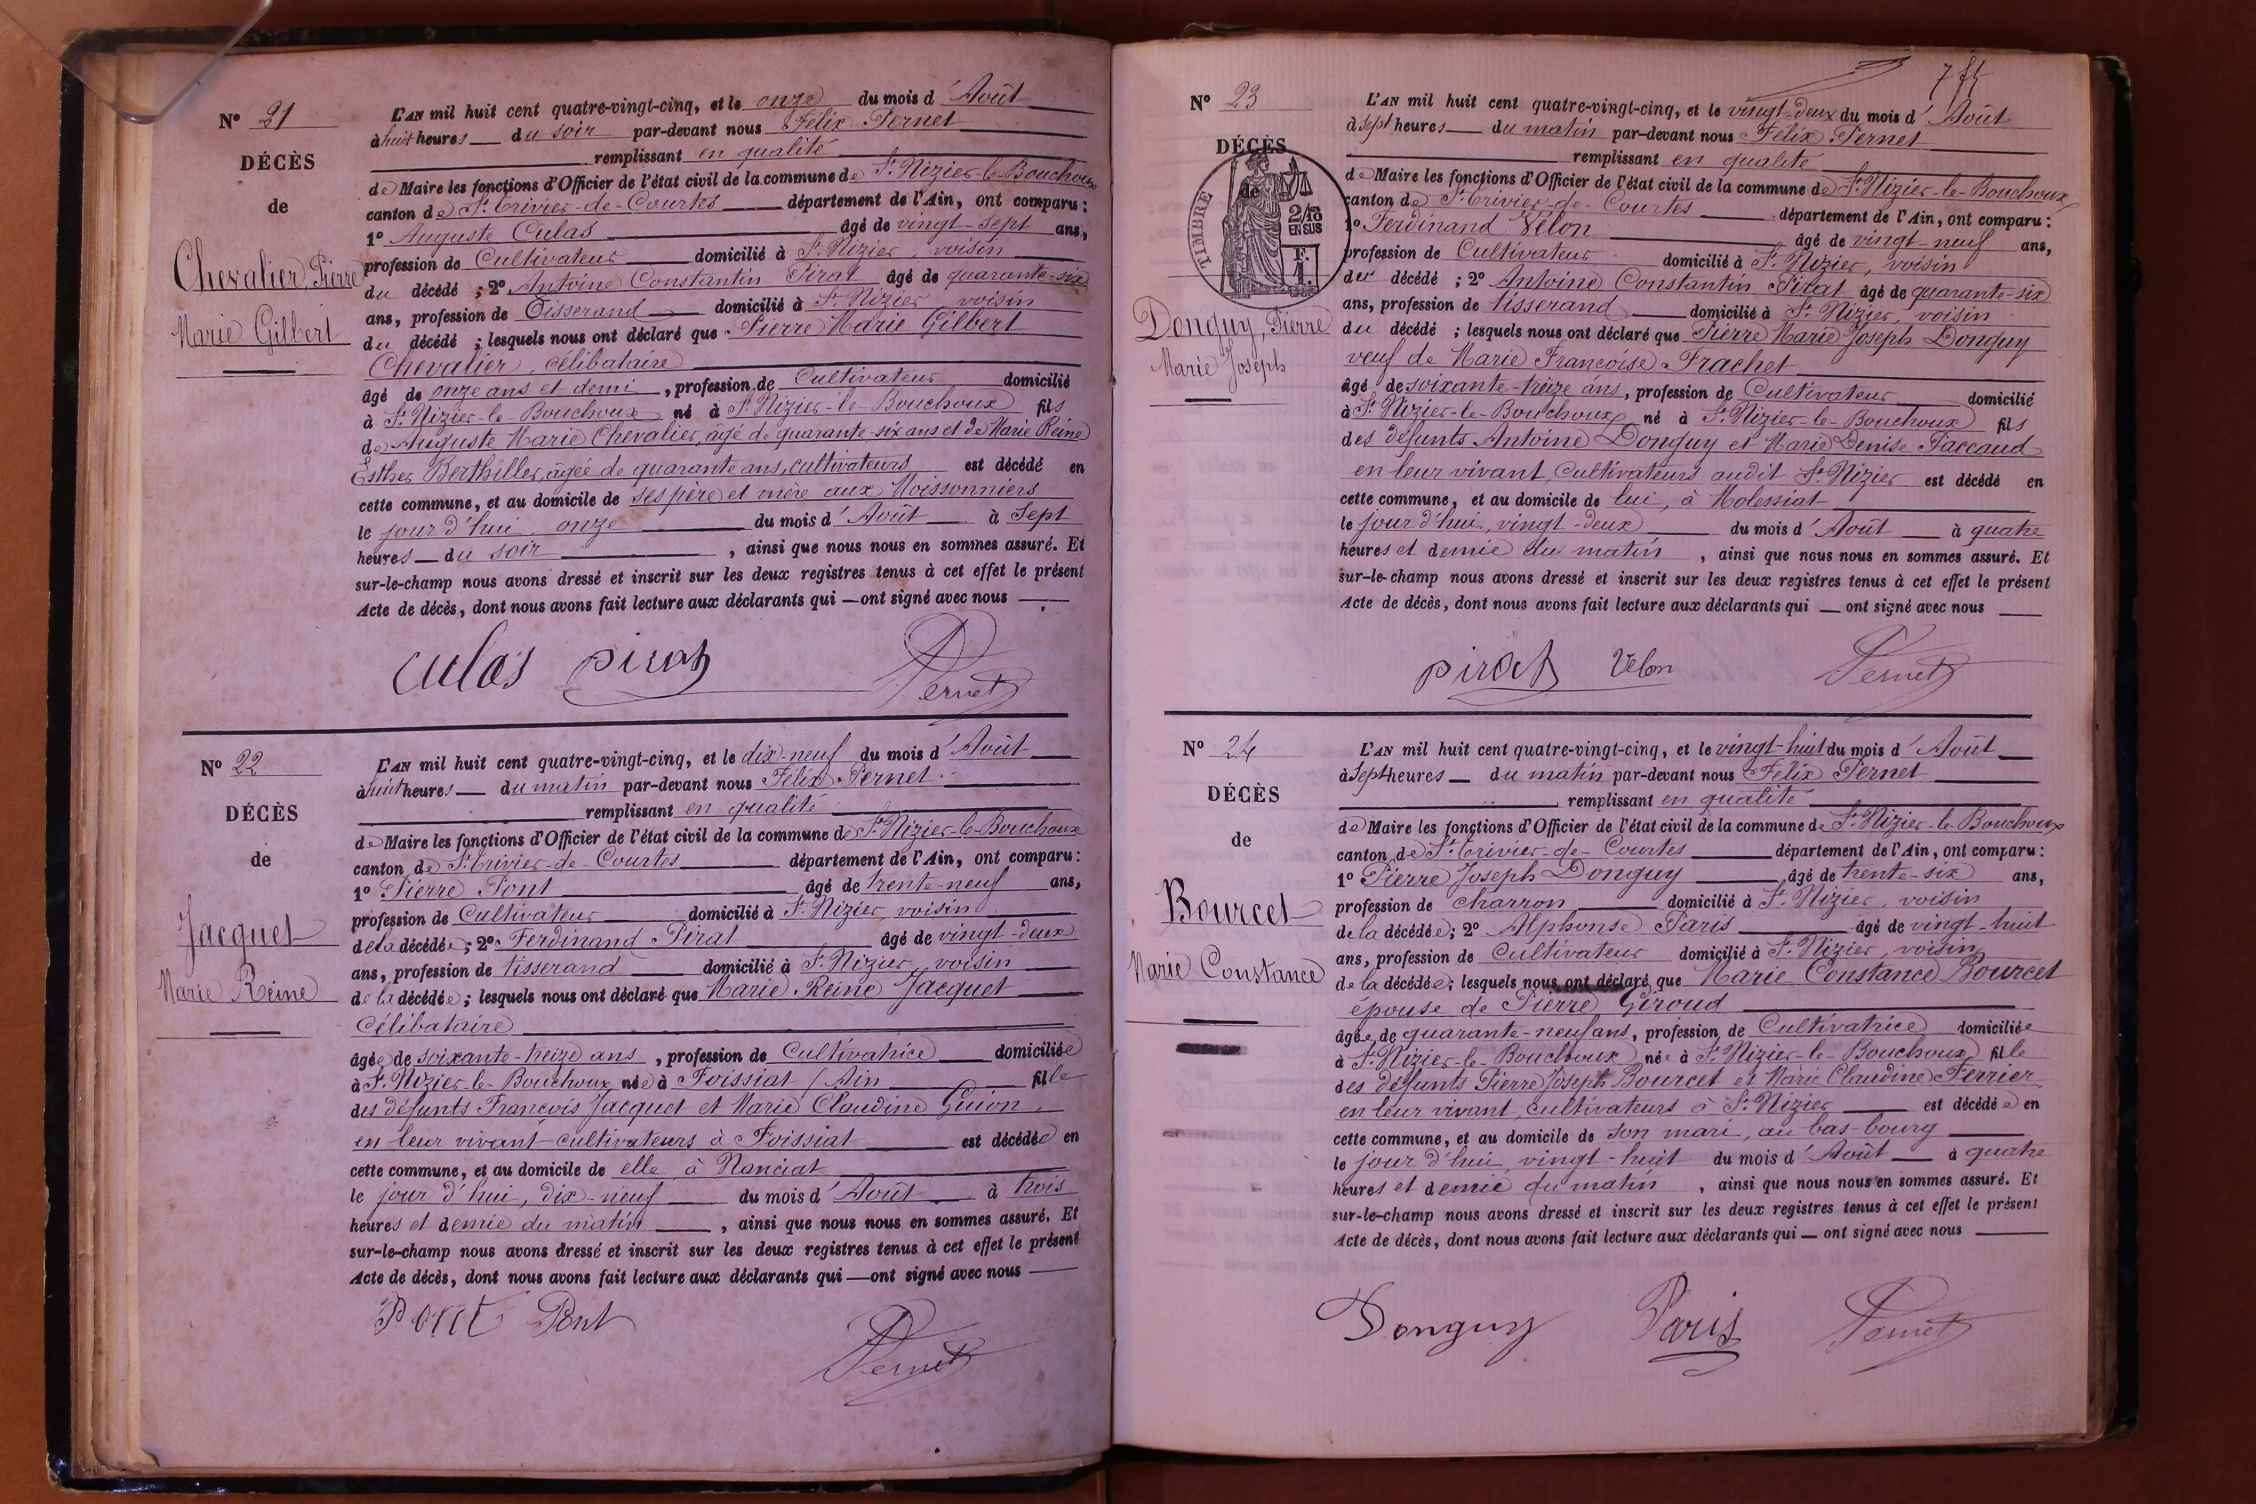 N° 21
DÉCÈS
de
Chevalier, Pierre
Marie Gilbert
L'AN mil huit cent quatre-vingt-cinq, et le onze du mois d'Août
à huit heures du soir par-devant nous Félix Pernet
remplissant en qualité
de Maire les fonctions d'Officier de l'état civil de la commune de St. Nizier-le-Bouchoux
canton de St. Trivier-de-Courtes département de l'Ain, ont comparu:
1° Auguste Culas âgé de vingt-sept ans,
profession de Cultivateur domicilié à St. Nizier, voisin
du décédé; 2° Antoine Constantin Pirat âgé de quarante-six
ans, profession de Tisserand domicilié à St. Nizier, voisin
du décédé; lesquels nous ont déclaré que Pierre Marie Gilbert
Chevalier, célibataire
âgé de onze ans et demi, profession de Cultivateur domicilié
à St. Nizier-le-Bouchoux né à St. Nizier-le-Bouchoux fils
de Auguste Marie Chevalier, âgé de quarante-six ans et de Marie Reine
Esther Berthiller, âgée de quarante ans, cultivateurs est décédé en
cette commune, et au domicile de ses père et mère aux Moissonniers
le jour d'hui onze du mois d'Août à sept
heures du soir, ainsi que nous nous en sommes assuré. Et
sur-le-champ nous avons dressé et inscrit sur les deux registres tenus à cet effet le présent
Acte de décès, dont nous avons fait lecture aux déclarants qui ont signé avec nous
Culas Pirat Pernet
N° 22
DÉCÈS
de
Jacquet
Marie Reine
L'AN mil huit cent quatre-vingt-cinq, et le dix-neuf du mois d'Août
à huit heures du matin par-devant nous Félix Pernet
remplissant en qualité
de Maire les fonctions d'Officier de l'état civil de la commune de St. Nizier-le-Bouchoux
canton de St. Trivier-de-Courtes département de l'Ain, ont comparu:
1° Pierre Pont âgé de trente-neuf ans,
profession de Cultivateur domicilié à St. Nizier, voisin
de la décédée; 2° Ferdinand Pirat âgé de vingt-deux
ans, profession de tisserand domicilié à St. Nizier, voisin
de la décédée; lesquels nous ont déclaré que Marie Reine Jacquet
célibataire
âgée de soixante-treize ans, profession de Cultivatrice domiciliée
à St. Nizier-le-Bouchoux née à Foissiat (Ain fille
des défunts François Jacquet et Marie Claudine Guion,
en leur vivant cultivateurs à Foissiat est décédée en
cette commune, et au domicile de elle à Nanciat
le jour d'hui, dix-neuf du mois d'Août à trois
heures et demie du matin, ainsi que nous nous en sommes assuré. Et
sur-le-champ nous avons dressé et inscrit sur les deux registres tenus à cet effet le présent
Acte de décès, dont nous avons fait lecture aux déclarants qui ont signé avec nous
Pont Pernet
N° 23
DÉCÈS
de
TIMBRE
2/10
EN SUS
F.
1.
Donguy, Pierre
Marie Joseph
L'AN mil huit cent quatre-vingt-cinq, et le vingt-deux du mois d'Août
à sept heures du matin par-devant nous Félix Pernet
remplissant en qualité
de Maire les fonctions d'Officier de l'état civil de la commune de St. Nizier-le-Bouchoux
canton de St. Trivier-de-Courtes département de l'Ain, ont comparu:
1° Ferdinand Vélon âgé de vingt-neuf ans,
profession de Cultivateur domicilié à St. Nizier, voisin
du décédé; 2° Antoine Constantin Pirat âgé de quarante-six
ans, profession de tisserand domicilié à St. Nizier, voisin
du décédé; lesquels nous ont déclaré que Pierre Marie Joseph Donguy
veuf de Marie Françoise Frachet
âgé de soixante-treize ans, profession de Cultivateur domicilié
à St. Nizier-le-Bouchoux né à St. Nizier-le-Bouchoux fils
des défunts Antoine Donguy et Marie Denise Paccaud
en leur vivant, cultivateurs audit St. Nizier est décédé en
cette commune, et au domicile de lui, à Molessiat
le jour d'hui, vingt-deux du mois d'Août à quatre
heures et demie du matin, ainsi que nous nous en sommes assuré. Et
sur-le-champ nous avons dressé et inscrit sur les deux registres tenus à cet effet le présent
Acte de décès, dont nous avons fait lecture aux déclarants qui ont signé avec nous
Pirat Velon Pernet
N° 24
DÉCÈS
de
Bourcet
Marie Constance
L'AN mil huit cent quatre-vingt-cinq, et le vingt-huit du mois d'Août
à sept heures du matin par-devant nous Félix Pernet
remplissant en qualité
de Maire les fonctions d'Officier de l'état civil de la commune de St. Nizier-le-Bouchoux
canton de St. Trivier-de-Courtes département de l'Ain, ont comparu:
1° Pierre Joseph Donguy âgé de trente-six ans,
profession de charron domicilié à St. Nizier, voisin
de la décédée; 2° Alphonse Paris âgé de vingt-huit
ans, profession de cultivateur domicilié à St. Nizier, voisin
de la décédée; lesquels nous ont déclaré que Marie Constance Bourcet
épouse de Pierre Giroud
âgée de quarante-neuf ans, profession de Cultivatrice domiciliée
à St. Nizier-le-Bouchoux née à St. Nizier-le-Bouchoux fille
des défunts Pierre Joseph Bourcet et Marie Claudine Perrier
en leur vivant, cultivateurs à St. Nizier est décédée en
cette commune, et au domicile de son mari, au bas-bourg
le jour d'hui vingt-huit du mois d'Août à quatre
heures et demie du matin, ainsi que nous nous en sommes assuré. Et
sur-le-champ nous avons dressé et inscrit sur les deux registres tenus à cet effet le présent
Acte de décès, dont nous avons fait lecture aux déclarants qui ont signé avec nous
Donguy Paris Pernet